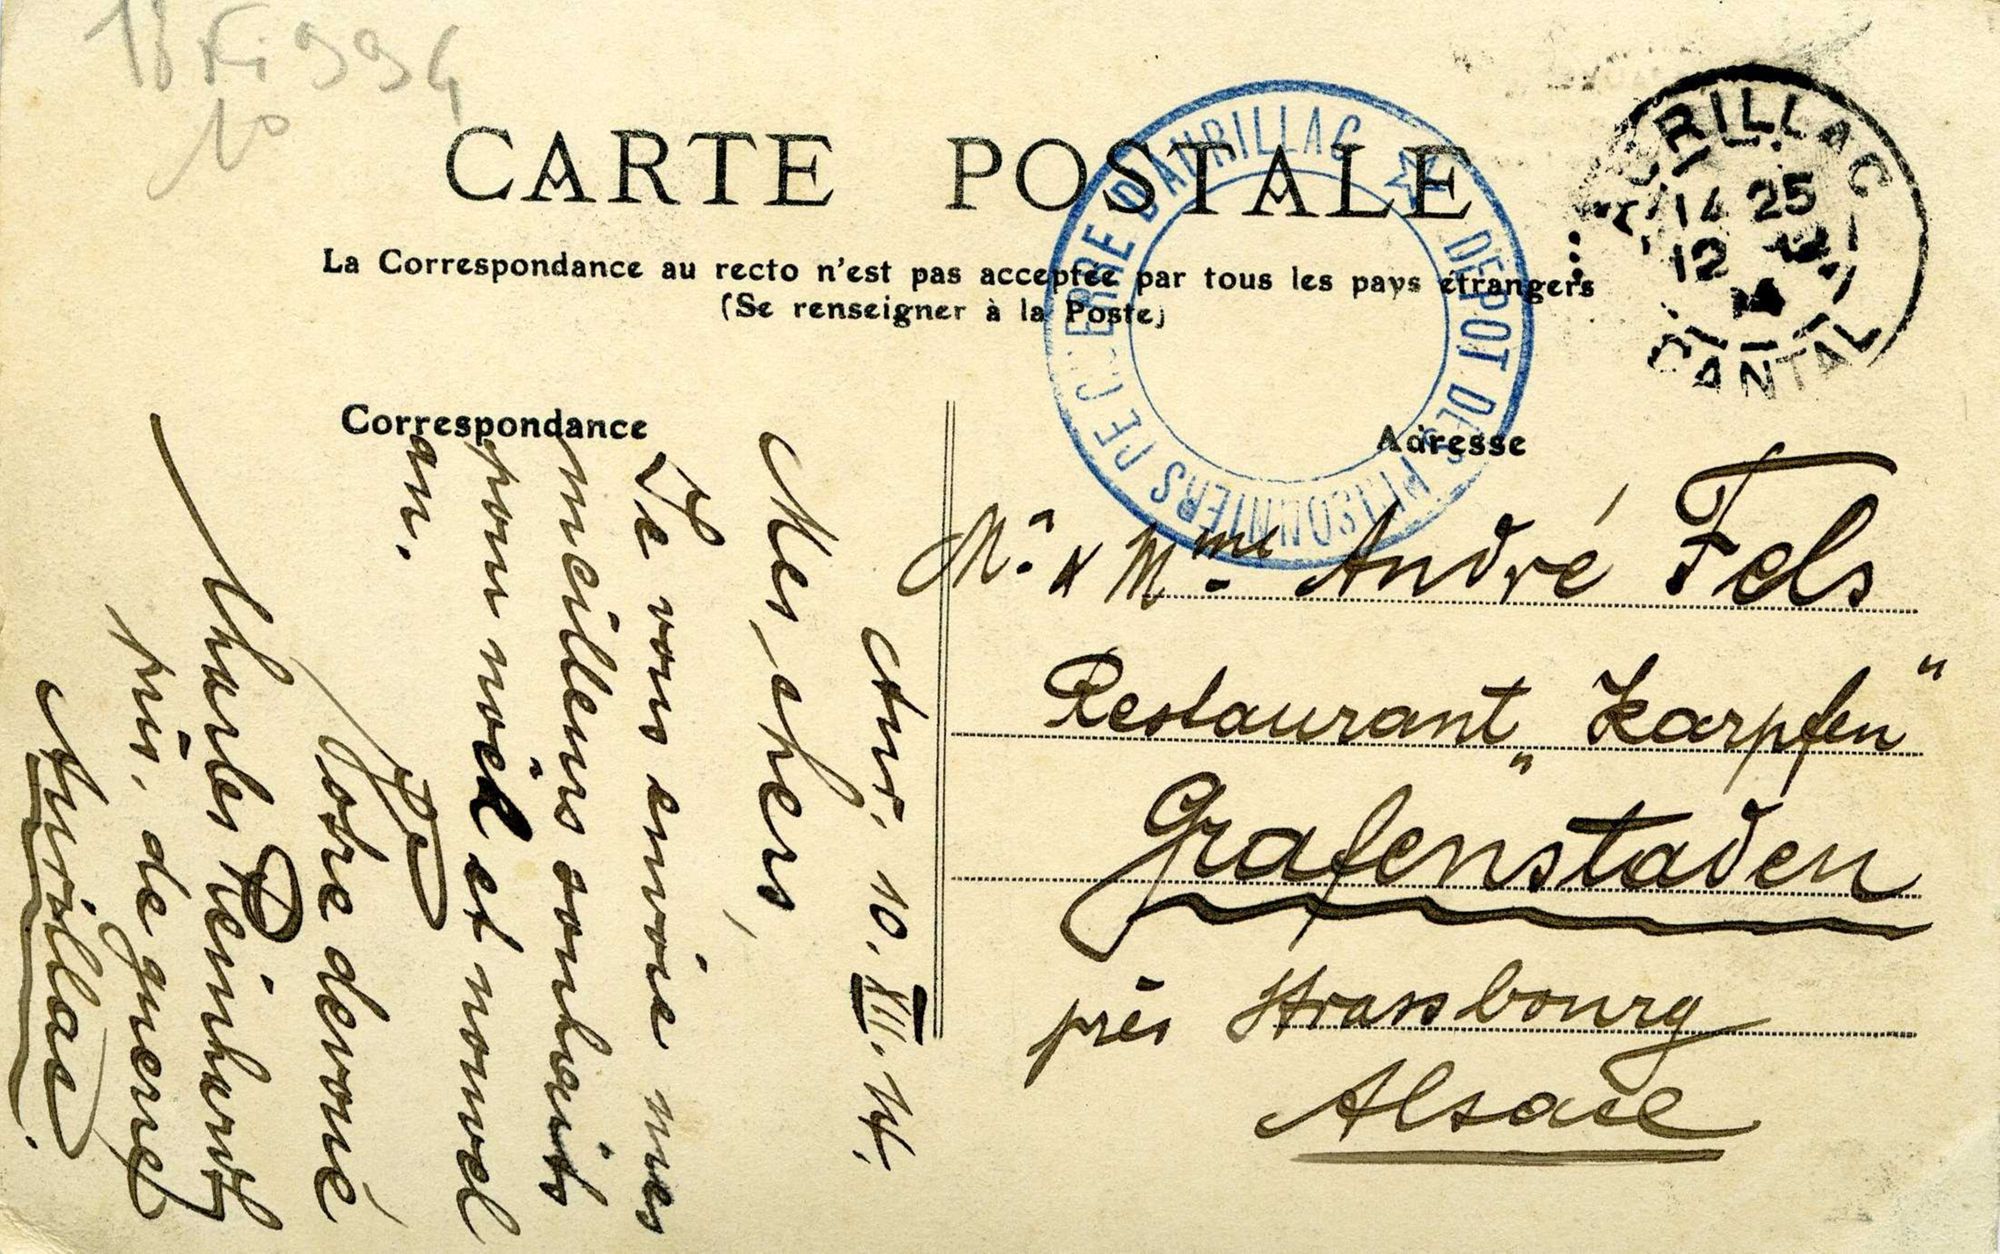 18 Fi 994
10
CARTE POSTALE
La Correspondance au recto n'est pas acceptée par tous les pays étrangers
(Se renseigner à la Poste)
DÉPOT DES PRISONNIERS DE GUERRE D'AURILLAC
AURILLAC
14 25
12 12
14
CANTAL
Correspondance
Adresse
Aur. 10.XII.14.
Mes chers,
Je vous envoie mes
meilleurs souhaits
pour noël et nouvel
an.
Votre devoué
Charles Reinhardt
pris. de guerre
Aurillac.
Mr. & Mme. André Fels
Restaurant „Karpfen"
Grafenstaden
près Strassbourg
Alsace